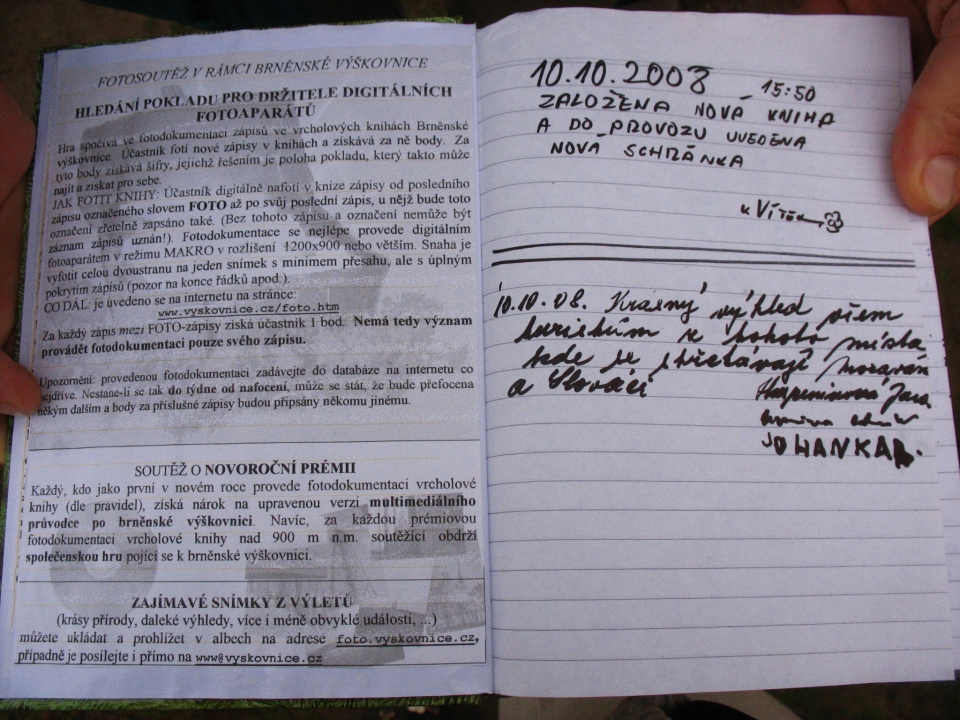 FOTOSOUTĚŽ V RÁMCI BRNĚNSKÉ VÝŠKOVNICE
HLEDÁNÍ POKLADU PRO DRŽITELE DIGITÁLNÍCH
FOTOAPARÁTŮ
Hra spočívá ve fotodokumentaci zápisů ve vrcholových knihách Brněnské
výškovnice. Účastník fotí nové zápisy v knihách a získává za ně body. Za
tyto body získává šifry, jejichž řešením je poloha pokladu, který takto může
najít a získat pro sebe.
JAK FOTIT KNIHY: Účastník digitálně nafotí v knize zápisy od posledního
zápisu označeného slovem FOTO až po svůj poslední zápis, u nějž bude toto
označení zřetelně zapsáno také. (Bez tohoto zápisu a označení nemůže být
záznam zápisů uznán!). Fotodokumentace se nejlépe provede digitálním
fotoaparátem v režimu MAKRO v rozlišení 1200x900 nebo větším. Snaha je
vyfotit celou dvoustranu na jeden snímek s minimem přesahu, ale s úplným
pokrytím zápisů (pozor na konce řádků apod.).
CO DÁL: je uvedeno se na internetu na stránce:
www.vyskovnice.cz/foto.htm
Za každý zápis mezi FOTO-zápisy získá účastník 1 bod. Nemá tedy význam
provádět fotodokumentaci pouze svého zápisu.
Upozornění: provedenou fotodokumentaci zadávejte do databáze na internetu co
nejdříve. Nestane-li se tak do týdne od nafocení, může se stát, že bude přefocena
někým dalším a body za příslušné zápisy budou připsány někomu jinému.
SOUTĚŽ O NOVOROČNÍ PRÉMII
Každý, kdo jako první v novém roce provede fotodokumentaci vrcholové
knihy (dle pravidel), získá nárok na upravenou verzi multimediálního
průvodce po brněnské výškovnici. Navíc, za každou prémiovou
fotodokumentaci vrcholové knihy nad 900 m n.m. soutěžící obdrží
společenskou hru pojící se k brněnské výškovnici.
ZAJÍMAVÉ SNÍMKY Z VÝLETŮ
(krásy přírody, daleké výhledy, více i méně obvyklé události, ...)
můžete ukládat a prohlížet v albech na adrese foto.vyskovnice.cz,
případně je posílejte i přímo na www@vyskovnice.cz
10.10.2008 15:50
ZALOŽENA NOVÁ KNIHA
A DO PROVOZU UVEDENA
NOVÁ SCHRÁNKA
Vítek
10.10.08. Krásný výhled všem
turistům z tohoto místa
kde se střetávají Moravané
a Slováci
JOHANKA